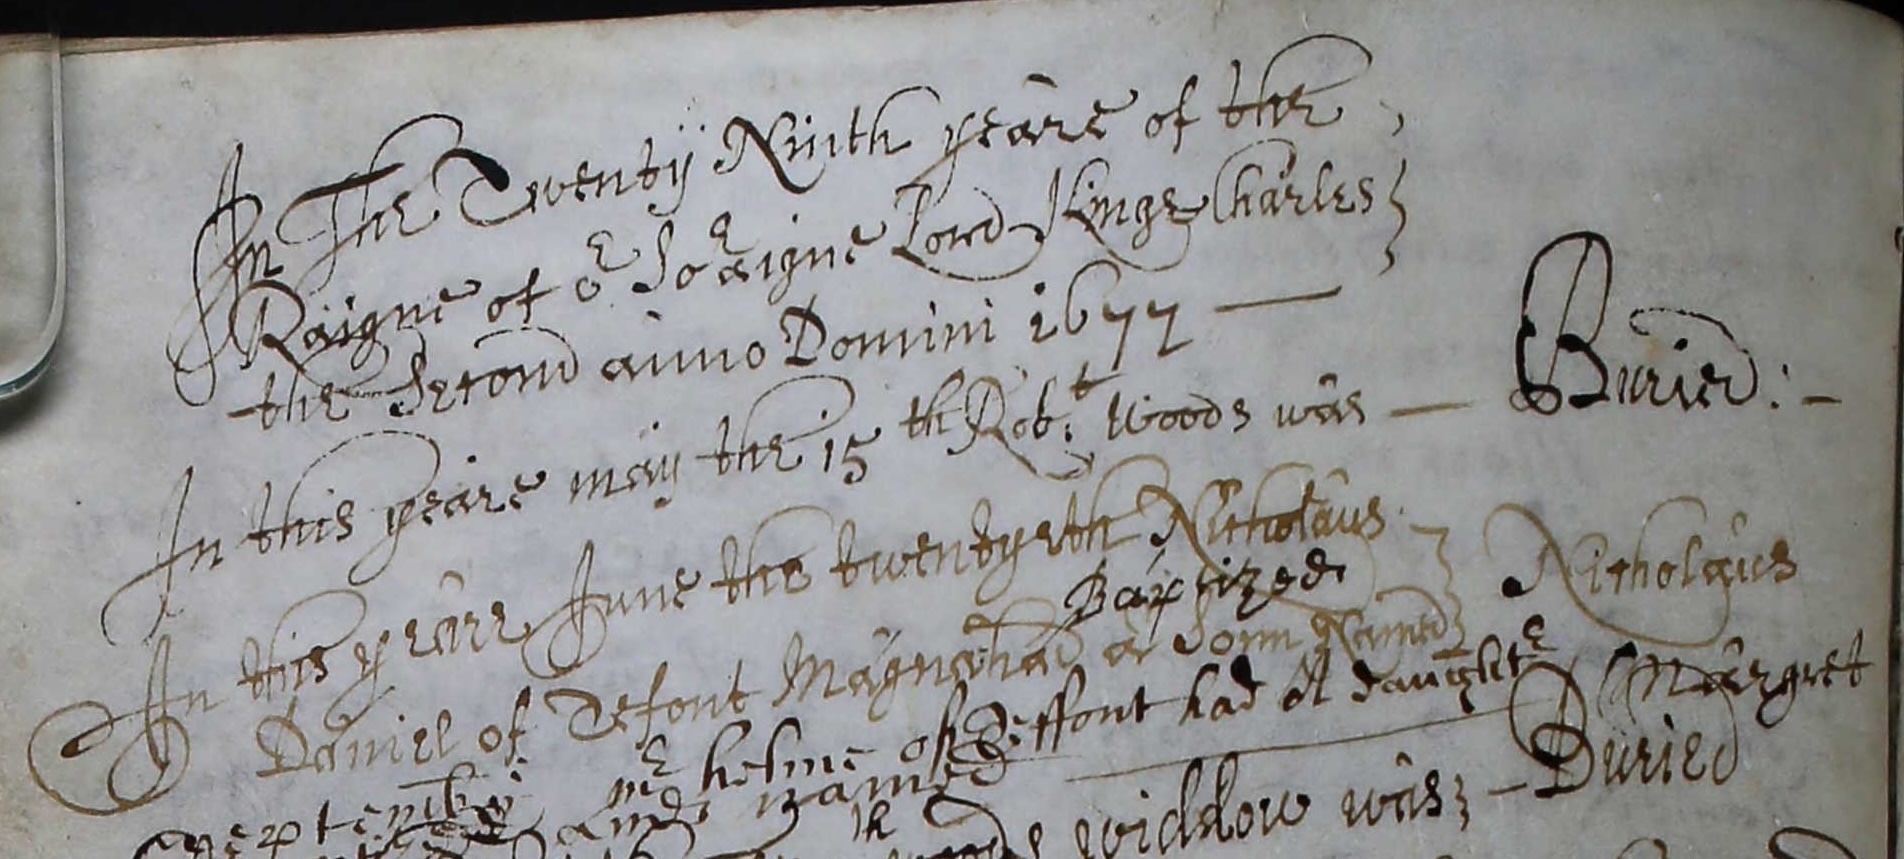 In The Twenty Ninth yeare of the
Raigne of oe Soeaigne Lord Kinge Charles
the Second anno Domini 1677 —
In this yeare may the 15 th Robt: Woods was — Buried: –
In this yeare June the twentyeth Nicholaus Nicholaus
Daniel of Tefont Magna had a Sonn Named
Baptized
Mr helme of Teffont had A daughter Margret
named
widdow was – Buried